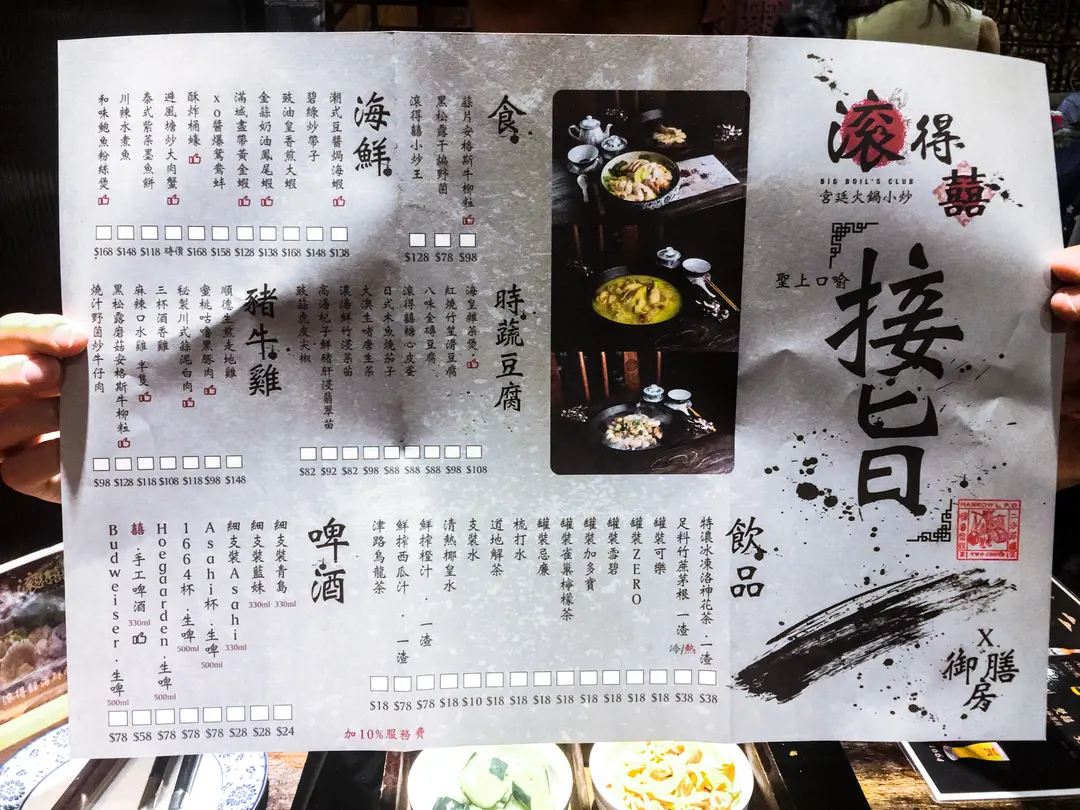 滾得囍
BIG BOIL'S CLUB
宮廷火鍋小炒
聖上口喻
接旨
X
御膳房
HANKOW L.P.O
食
蒜片安格斯牛柳粒
$98
黑松露干煸野菌
$78
滾得囍小炒王
$128
海鮮
潮式豆醬焗海蝦
$138
碧綠炒帶子
$148
豉油皇香煎大蝦
$168
金蒜奶油鳳尾蝦
$138
滿城盡帶黃金蝦
$128
XO醬爆鴛鴦蚌
$158
酥炸桶蠔
$168
避風塘炒大肉蟹
時價
泰式紫菜墨魚餅
$118
川辣水煮魚
$148
和味鮑魚粉絲煲
$168
時蔬豆腐
海皇雜菜煲
$108
紅燒竹笙滑豆腐
$98
八味金磚豆腐
$88
滾得囍糖心皮蛋
$88
日式木魚燒茄子
$88
大澳生啫唐生菜
$98
濃湯鮮竹浸菜苗
$82
高湯杞子鮮豬肝浸翡翠苗
$92
豉蒜虎皮尖椒
$82
豬牛雞
順德生煎走地雞
$148
蜜桃咕嚕黑豚肉
$98
秘製川式蒜泥白肉
$118
三杯酒香雞
$108
麻辣口水雞 半隻
$118
黑松露磨菇安格斯牛柳粒
$128
燒汁野菌炒牛仔肉
$98
飲品
特濃冰凍洛神花茶．一渣
$38
足料竹蔗茅根 一渣
冷/熱
$38
罐裝可樂
$18
罐裝ZERO
$18
罐裝雪碧
$18
罐裝加多寶
$18
罐裝雀巢檸檬茶
$18
罐裝忌廉
$18
梳打水
$18
道地解茶
$18
支裝水
$10
清熱椰皇水
$18
鮮榨橙汁．一渣
$78
鮮榨西瓜汁．一渣
$78
津路烏龍茶
$18
啤酒
細支裝青島
330ml
$24
細支裝藍妹
330ml
$28
細支裝Asahi
330ml
$28
Asahi杯．生啤
500ml
$78
1664杯．生啤
500ml
$78
Hoegaarden．生啤
500ml
$78
囍．手工啤酒
330ml
$58
Budweiser．生啤
500ml
$78
加10%服務費